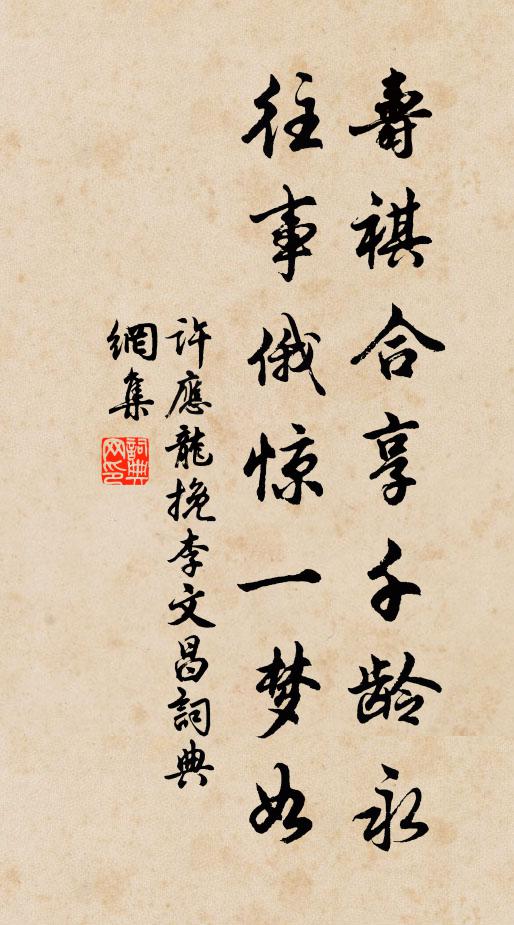 壽祺合享千龄永
往事俄惊一梦如
許應龍挽李文昌詞典
網集
詞典網印